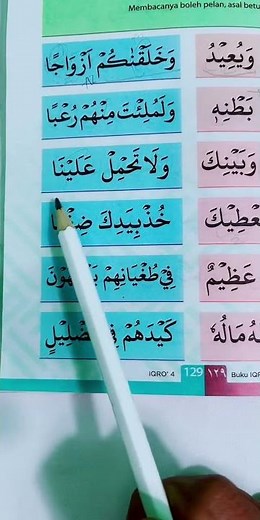 Membacanya boleh pelan, asal betu
وَيُعِيْدُ وَخَلَقْنٰكُمْ اَزْوَاجًا
بَطْنِهٖ وَلَمُلِئْتَ مِنْهُمْ رُعْبًا
وَبَيْنِكَ وَلَا تَحْمِلْ عَلَيْنَا
عْطِيْكَ خُذْ بِيَدِكَ
عَظِيْمٌ فِيْ طُغْيَانِهِمْ
هُ مَالُهٗ كَيْدَهُمْ
IQRO' 4 129 ١٢٩ Buku IQR